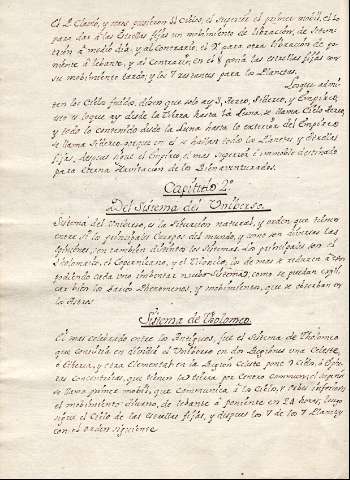 El P. Clavio, y otros pusieron 11 Cielos, el superior el primer mobil, el 10
para dar á las Estrellas fijas un mobimiento de libración, de Septen-
trión á medio dia y al Contrario, el 9 para otra libracion de po-
niente á lebante, y al Contrario, en el 8 ponía las estrellas fijas con
su mobimiento tardo y los 7 restantes para los Planetas.
Los que admi-
ten los Cielos fluidos, dicen que solo ay 3, Aereo, Sidereo, y Empireo,
esto es lo que ay desde la tierra hasta la Luna, se llama Cielo Aereo,
y todo lo contenido desde la Luna hasta lo exterior del Empireo
se llama Sidereo, porque en el se hallan todos los Planetas y Estrellas
fijas, despues sigue el Empireo, el mas superior é immoble destinado
para Eterna Habitacion de los Bienaventurados.
Capitulo 2º
Del Sistema del Universo.
Sistema del Universo, es la Situacion natural, y orden que tienen
entre si los principales Cuerpos del mundo, y como son diversas las
opiniones, son tambien distintos los Sistemas. Los principales son el
Ptolomaico, el Copernicano, y el Ticonico, los de mas se reducen á estos
pudiendo cada uno inventar nuebo Sistema, como se puedan expli-
car bien los barios Phenomenos, y mobimientos, que se observan en
los Astros.
Sistema de Tholomeo.
El mas celebrado entre los Antiguos, fue el Sistema de Tholomeo
que consistia en dividir el Universo en dos Regiones una Celeste,
ó Etherea, y otra Elementar en la Region Celeste pone 9 Cielos, ó Esfe-
ras Concentricas, que tienen la tierra por Centro Commun, el superior
se llama primer mobil, que Communica á los Cielos, y Orbes inferiores
el mobimiento diurno, de lebante á poniente en 24 horas, luego
sigue el Cielo de las estrellas fijas, y despues los 7 de los 7 Planetas
con el orden siguiente